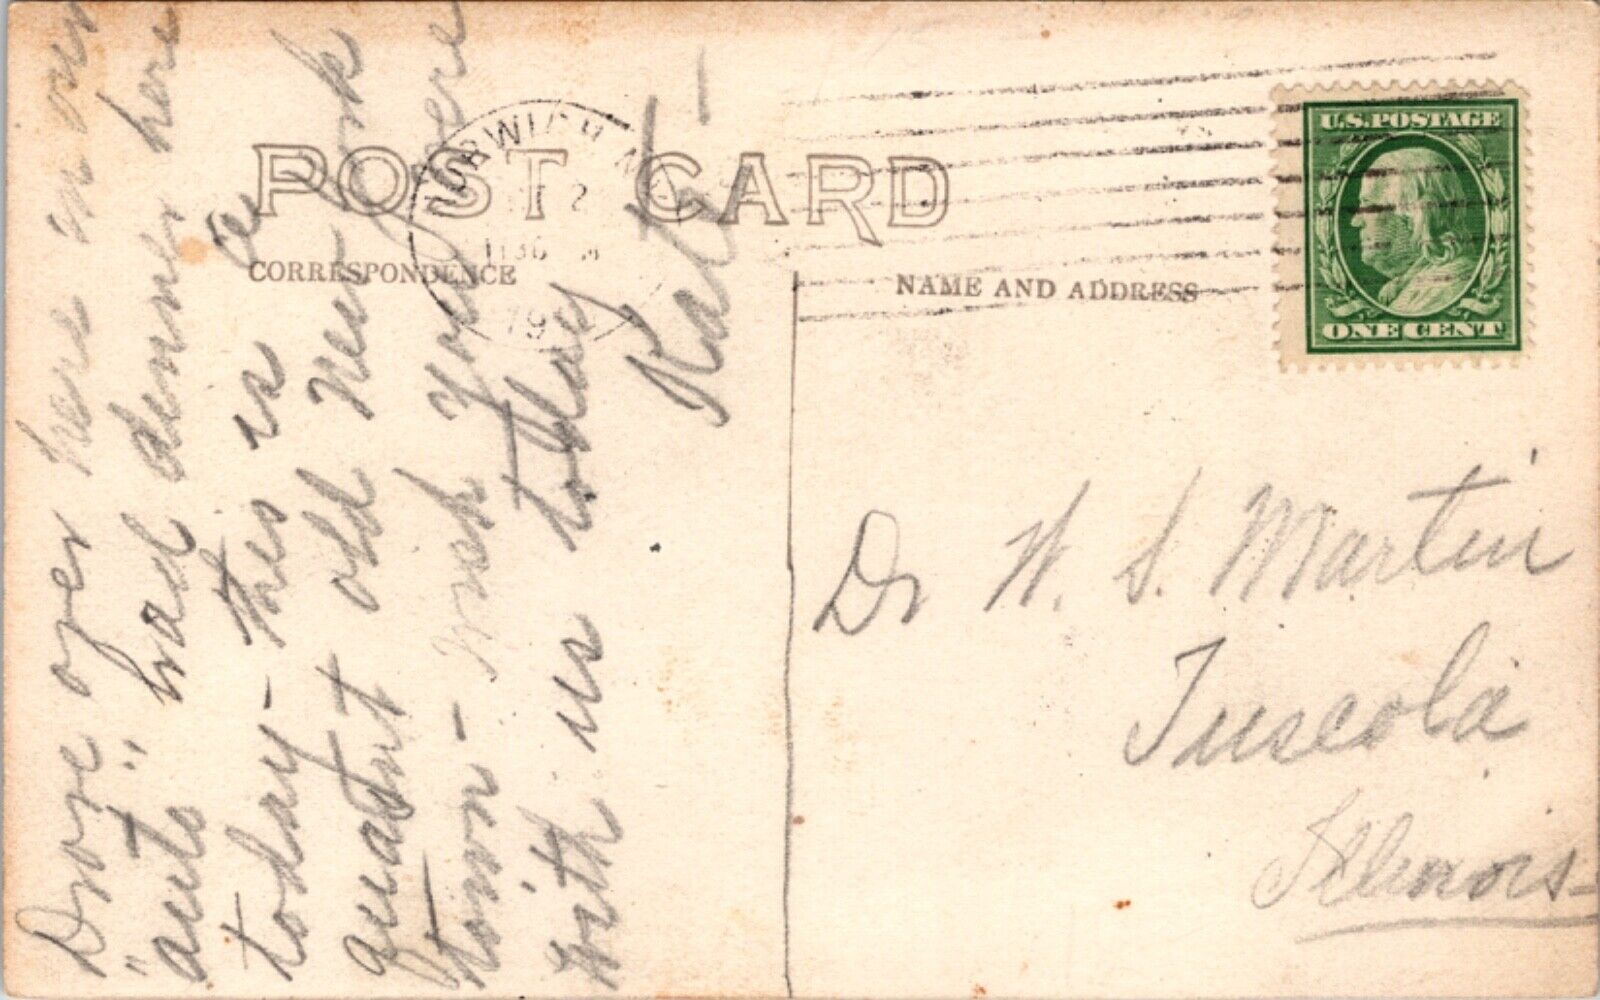 POST CARD
CORRESPONDENCE
NAME AND ADDRESS
U.S. POSTAGE
ONE CENT
NORWICH N.Y.
2
1130
19
Drove over here in our
"auto" had dinner here
today - this is a
quaint old New York
town - Wish you were
with us today
Kate -
Dr W. S. Martin
Tuscola
Illinois -